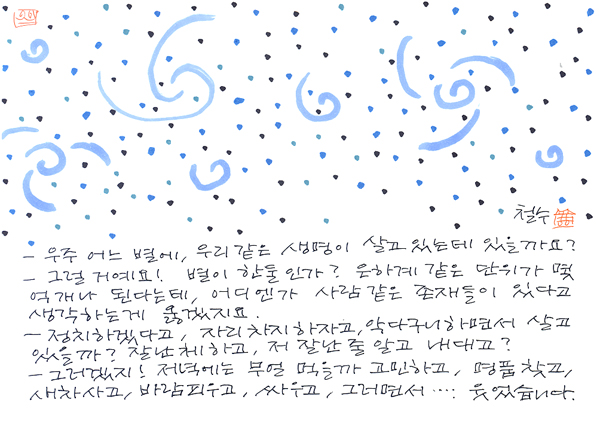 철수
- 우주 어느 별에, 우리같은 생명이 살고 있는데 있을까요?
- 그럴 거예요! 별이 한둘인가? 은하계 같은 단위가 몇
억개나 된다는데, 어디엔가 사람같은 존재들이 있다고
생각하는게 옳겠지요.
- 정치하겠다고, 자리차지하자고, 악다구니하면서 살고
있을까? 잘난체하고, 저 잘난 줄 알고 내대고?
- 그러겠지! 저녁에는 무얼 먹을까 고민하고, 명품찾고,
새차사고, 바람피우고, 싸우고, 그러면서 …. 웃었습니다.